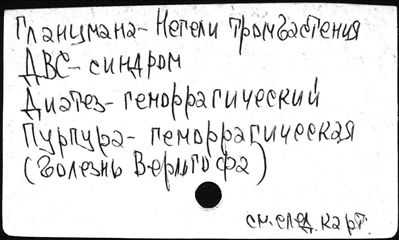 Гланцмана-Негели тромбастения
ДВС-синдром
Диатез-геморрагический
Пурпура-геморрагическая
(болезнь Верльгофа)
см.след.карт.